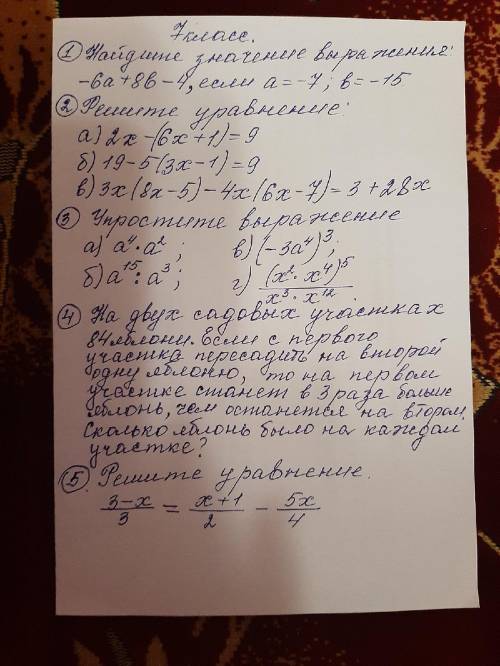 7 класс.
① Найдите значение выражения:
-6a+8b-4, если a=-7; b=-15
② Решите уравнение:
а) 2x-(6x+1)=9
б) 19-5(3x-1)=9
в) 3x(8x-5)-4x(6x-7)=3+28x
③ Упростите выражение
а) a⁴·a²; в) (-3a⁴)³;
б) a¹⁵:a³; г) (x²·x⁴)⁵/(x³·x¹²)
④ На двух садовых участках
84 яблони. Если с первого
участка пересадить на второй
одну яблоню, то на первом
участке станет в 3 раза больше
яблонь, чем останется на втором.
Сколько яблонь было на каждом
участке?
⑤ Решите уравнение.
(3-x)/3 = (x+1)/2 - 5x/4